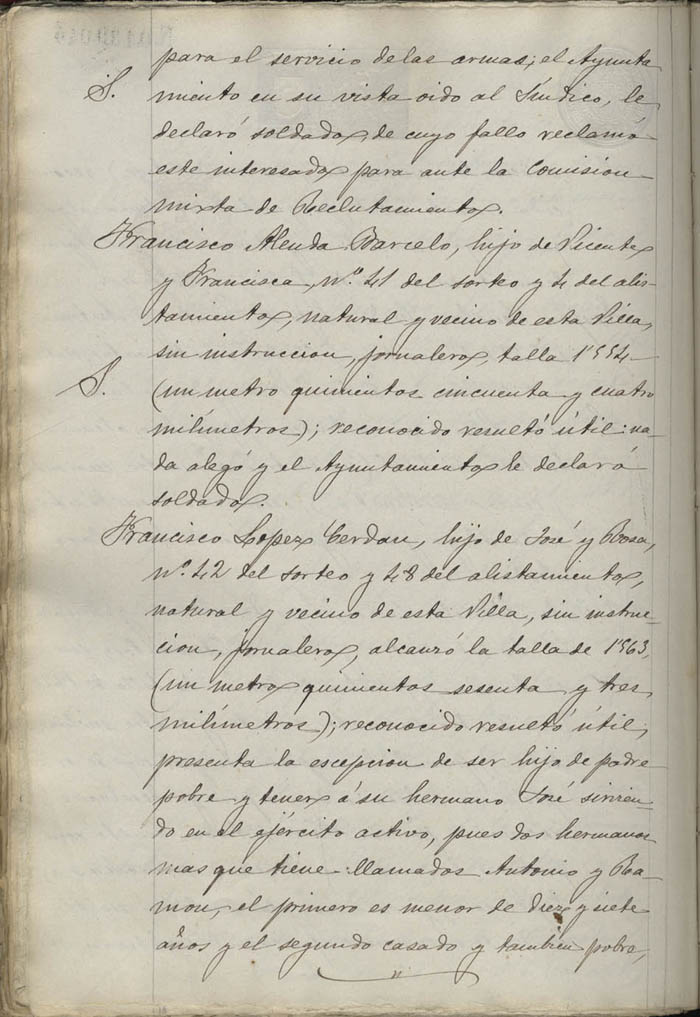 para el servicio de las armas; el Ayunta
S. miento en su vista oido al Síndico, le
declaró soldado, de cuyo fallo reclamó
este interesado para ante la Comision
mixta de Reclutamiento.
Francisco Alenda Barcelo, hijo de Vicente
y Francisca, nº. 41 del sorteo y 4 del alis-
tamiento, natural y vecino de esta Villa,
sin instruccion, jornalero, talla 1'554
S. (un metro quinientos cincuenta y cuatro
milímetros); reconocido resultó útil: na-
da alegó y el Ayuntamiento le declaró
soldado.
Francisco Lopez Cerdan, hijo de José y Rosa,
nº. 42 del sorteo y 48 del alistamiento,
natural y vecino de esta Villa, sin instruc-
cion, jornalero, alcanzó la talla de 1'563,
(un metro quinientos sesenta y tres
milímetros); reconocido resultó útil,
presenta la escepcion de ser hijo de padre
pobre y tener á su hermano José sirvien-
do en el ejército activo, pues dos hermanos
mas que tiene llamados Antonio y Ra-
mon, el primero es menor de diez y siete
años y el segundo casado y tambien pobre,